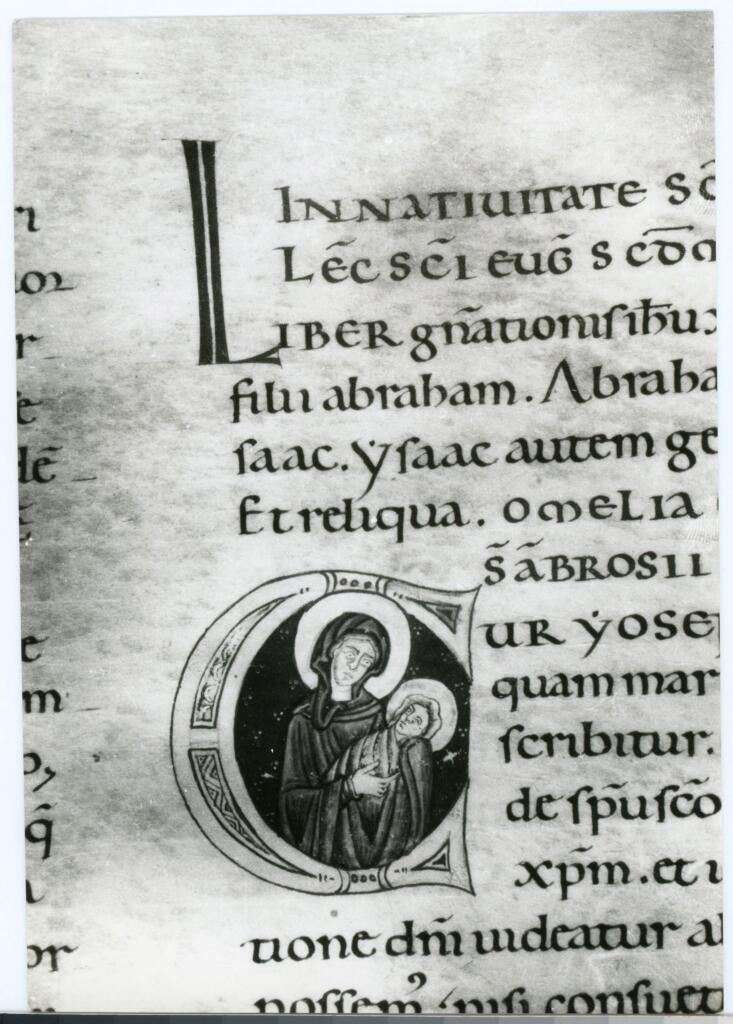 IN NATIUITATE SC̄
LĒC SC̄I EUḠ S CD̄M
LIBER gn̄ationis ih̄u x
filii abraham. Abraha
saac. ẏsaac autem ge
Et reliqua. OMELIA
S̄ ĀBROSII
CUR ẎOSE
quam mar
scribitur.
de sp̄u sc̄o
xp̄m. et u
tione dn̄i uideatur al
possem᾽ nisi consuet